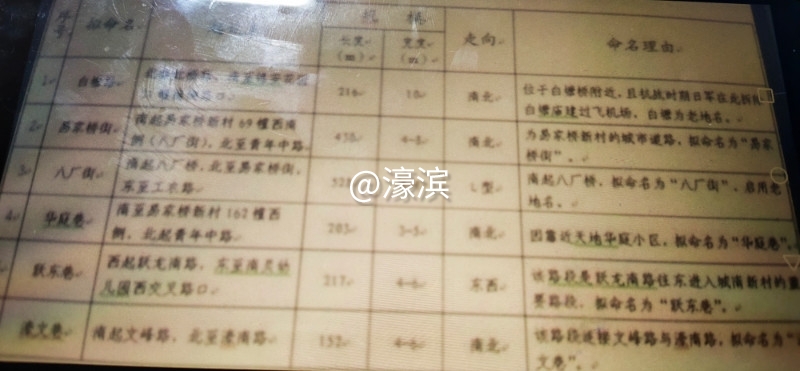 序号 拟命名 规模 走向 命名理由
长度(m) 宽度(m)
1 白塘路 216 18 南北 位于白塘桥附近，且抗战时期日军在此拆
白塘庙建过飞机场，白塘为老地名。
2 易家桥街 南起易家桥新村69幢西南
侧（八厂街），北至青年中路 438 4-8 南北 为易家桥新村的城市道路，拟命名为“易家
桥街”。
3 八厂街 南起八厂桥，北至易家桥街，
东至工农路 L型 南起八厂桥，拟命名为“八厂街”，启用老
地名。
4 华庭巷 南至易家桥新村162幢西
侧，北起青年中路 203 3-5 南北 因靠近天地华庭小区，拟命名为“华庭巷”
跃东巷 西起跃龙南路，东至南灵幼
儿园西交叉路口 217 4-6 东西 该路段是跃龙南路往东进入城南新村的重
要路段，拟命名为“跃东巷”。
濠文巷 南起文峰路，北至濠南路 152 4-6 南北 该路段连接文峰路与濠南路，拟命名为“
文巷”。
@濠滨